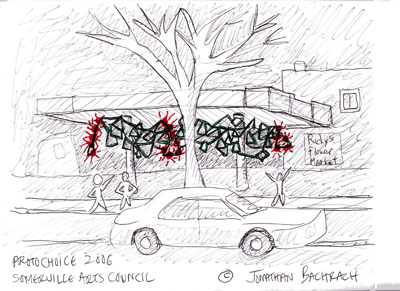 Ricky's
Flower
Market
PROTOCHOICE 2006
SOMERVILLE ARTS COUNCIL
© JONATHAN BACHRACH